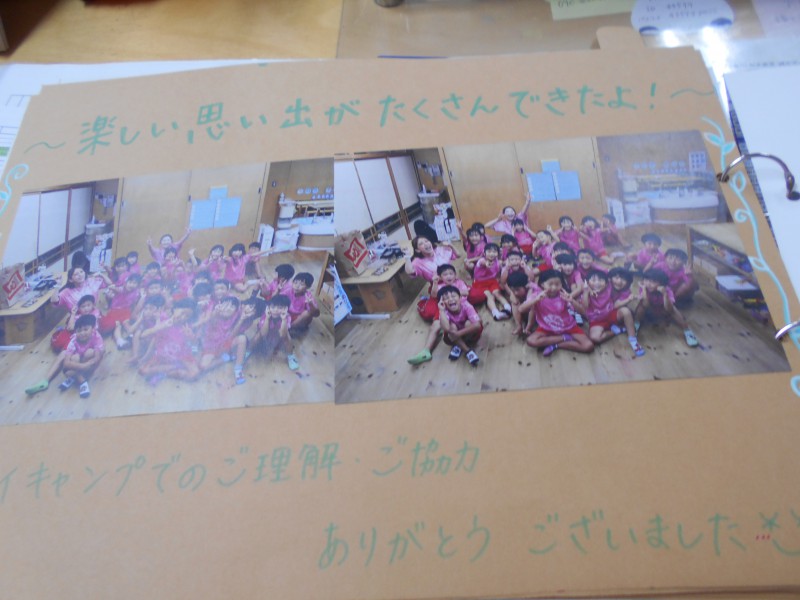 ～楽しい思い出がたくさんできたよ！～
イキャンプでのご理解・ご協力
ありがとうございました